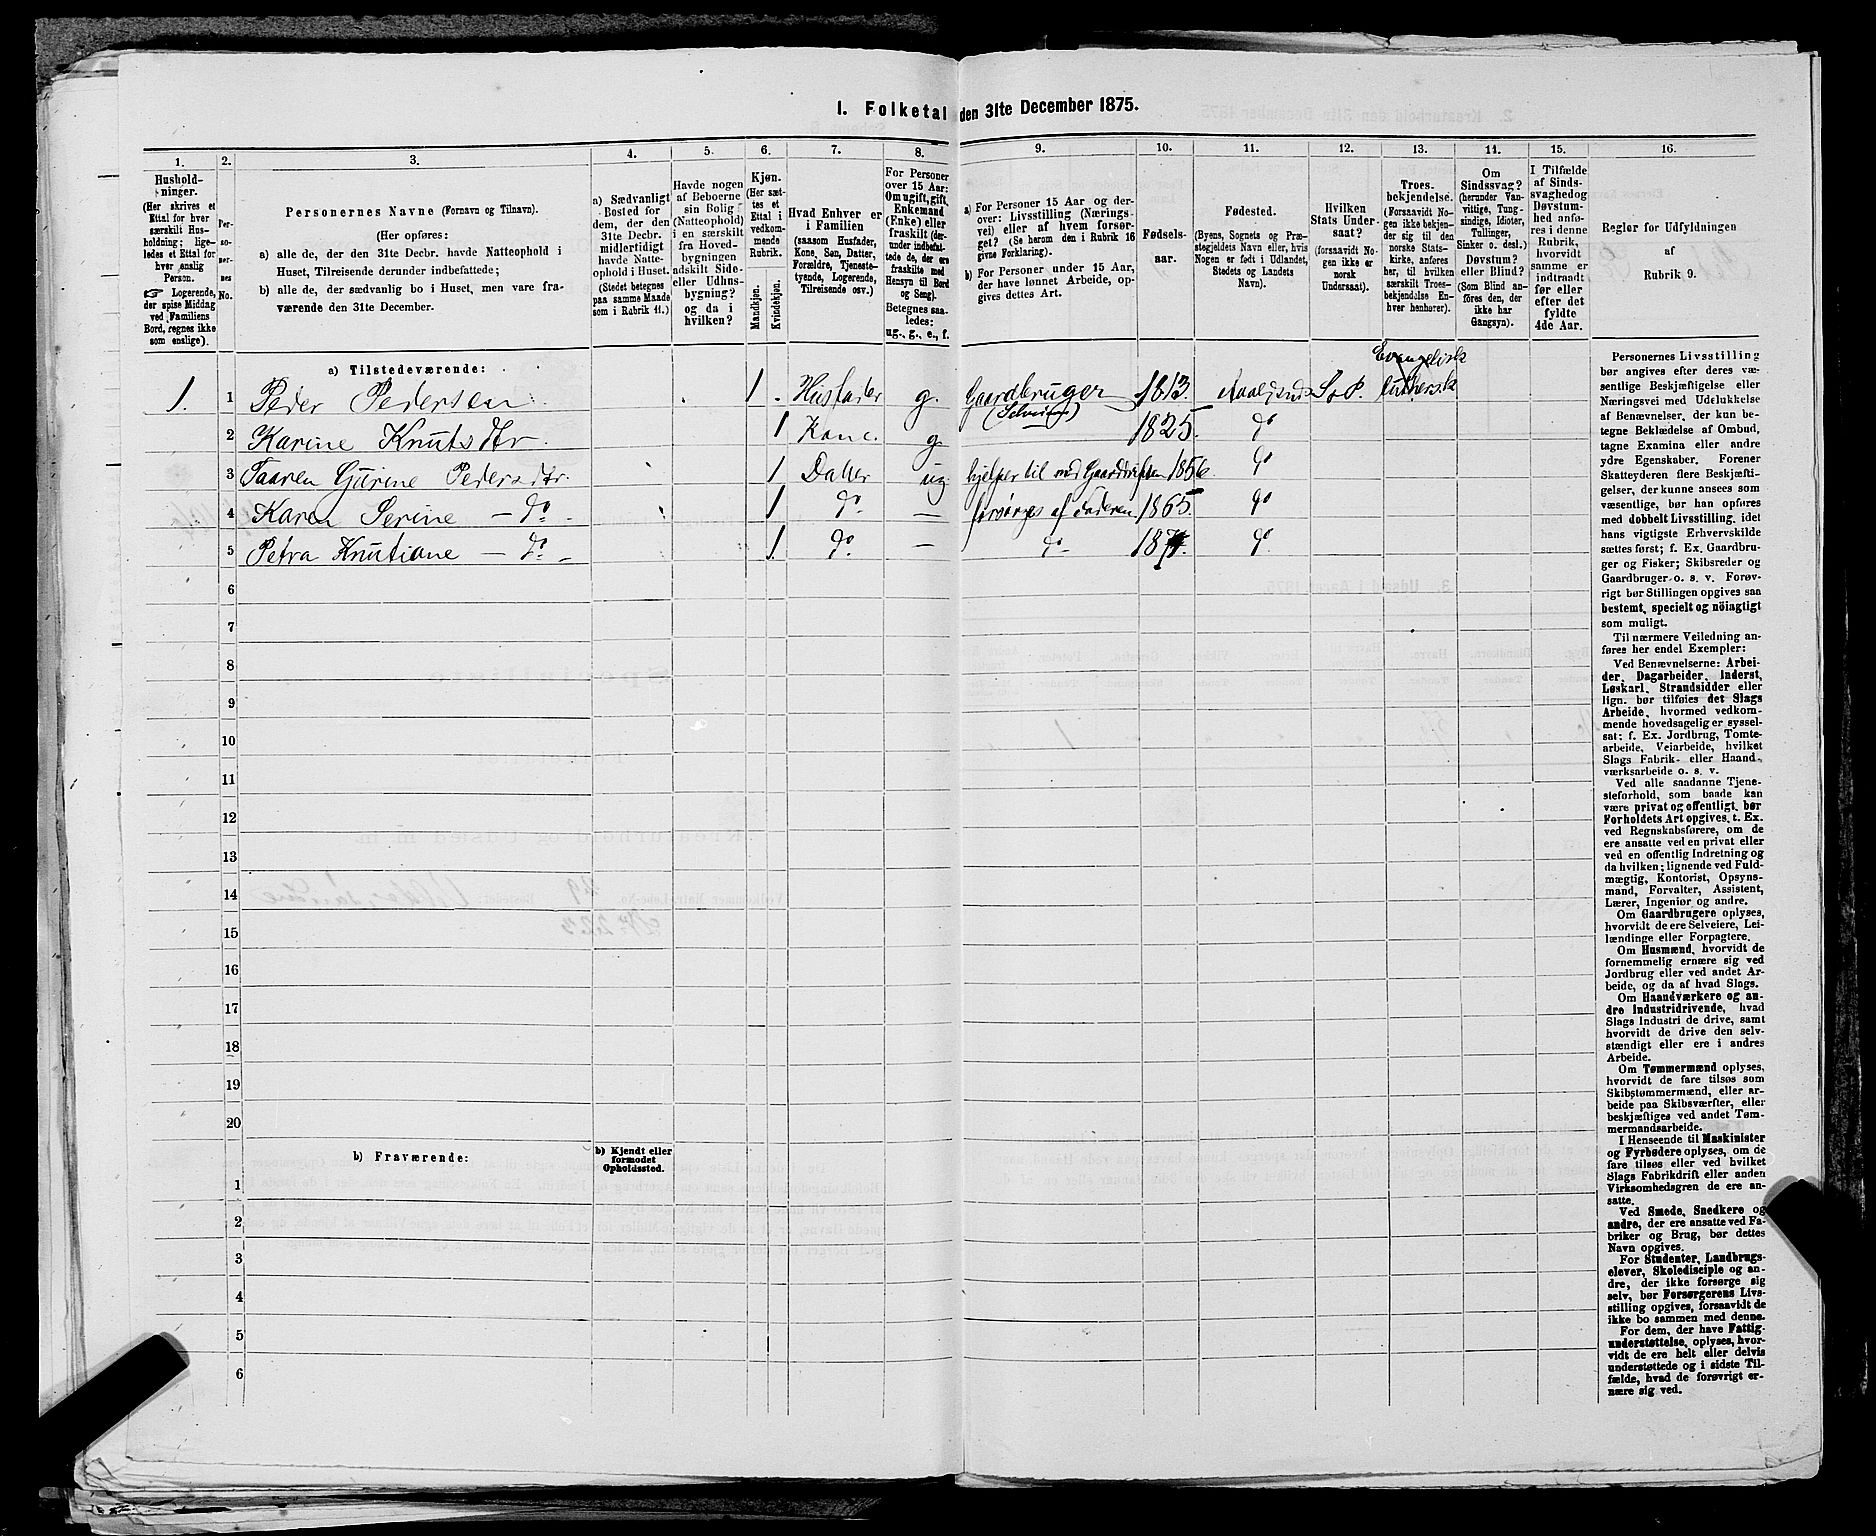 I. Folketal den 31te December 1875.
1.
Hushold-
ninger.
(Her skrives et
Ettal for hver
særskilt Hus-
holdning; lige-
ledes et Ettal for
hver enslig
Person.
☞ Logerende,
der spise Middag
ved Familiens
Bord, regnes ikke
som enslige).
2.
Per-
so-
ner-
nes
No.
3.
Personernes Navne (Fornavn og Tilnavn).
(Her opføres:
a) alle de, der den 31te Decbr. havde Natteophold i
Huset, Tilreisende derunder indbefattede;
b) alle de, der sædvanlig bo i Huset, men vare fra-
værende den 31te December.
4.
a) Sædvanligt
Bosted for
dem, der den
31te Decbr.
midlertidigt
havde Natte-
ophold i Huset.
(Stedet betegnes
paa samme Maade
som i Rubrik 11.)
5.
Havde nogen
af Beboerne
sin Bolig
(Natteophold)
i en særskilt
fra Hoved-
bygningen
adskilt Side-
eller Udhus-
bygning?
og da i
hvilken?
6.
Kjøn.
(Her sæt-
tes et
Ettal i
vedkom-
mende
Rubrik.
Mandkjøn.
Kvindekjøn.
7.
Hvad Enhver er
i Familien
(saasom Husfader,
Kone, Søn, Datter,
Forældre, Tjeneste-
tyende, Logerende,
Tilreisende osv.)
8.
For Personer
over 15 Aar:
Om ugift, gift,
Enkemand
(Enke) eller
fraskilt (der-
under indbefat-
tede de, der ere
fraskilte med
Hensyn til Bord
og Seng).
Betegnes saa-
ledes:
ug., g., e., f.
9.
a) For Personer 15 Aar og der-
over: Livsstilling (Nærings-
vei) eller af hvem forsør-
get? (Se herom den i Rubrik 16
givne Forklaring).
b) For Personer under 15 Aar,
der have lønnet Arbeide, op-
gives dettes Art.
10.
Fødsels-
aar.
11.
Fødested.
(Byens, Sognets og Præ-
stegjeldets Navn eller, hvis
Nogen er født i Udlandet,
Stedets og Landets
Navn).
12.
Hvilken
Stats Under-
saat?
(forsaavidt No-
gen ikke er
norsk
Undersaat).
13.
Troes-
bekjendelse.
(Forsaavidt No-
gen ikke bekjen-
der sig til den
norske Stats-
kirke, anføres
her, til hvilken
særskilt Troes-
bekjendelse En-
hver henhører).
14.
Om
Sindssvag?
(herunder Van-
vittige, Tung-
sindige, Idioter,
Tullinger,
Sinker o. desl.)
Døvstum?
eller Blind?
(Som Blind an-
føres den, der
ikke har
Gangsyn).
15.
I Tilfælde
af Sinds-
svaghed og
Døvstum-
hed anfø-
res i denne
Rubrik,
hvorvidt
samme er
indtraadt
før eller
efter det
fyldte
4de Aar.
16.
Regler for Udfyldningen
af
Rubrik 9.
a) Tilstedeværende:
1. 1 Peder Pedersen 1 Husfader g. Gaardbruger (Selveier) 1813. S. P. Evangelisk luthersk
2 Karine Knutsdtr. 1 Kone. g 1825. do
3 Taaren Gurine Pedersdtr. 1 Datter ug. hjelper til med Gaardsdriften 1856 do
4 Karen Serine — do - 1 do. — forsørges af Faderen 1865. do
5 Petra Knutiane — do - 1. do. — do - do
6
7
8
9
10
11
12
13
14
15
16
17
18
19
20
b) Fraværende:
b) Kjendt eller
formodet
Opholdssted.
1
2
3
4
5
6
Personernes Livsstilling
bør angives efter deres væ-
sentlige Beskjæftigelse eller
Næringsvei med Udelukkelse
af Benævnelser, der kun be-
tegne Beklædelse af Ombud,
tagne Examina eller andre
ydre Egenskaber. Forener
Skatteyderen flere Beskjæfti-
gelser, der kunne ansees som
væsentlige, bør han opføres
med dobbelt Livsstilling, idet
hans vigtigste Erhvervskilde
sættes først; f. Ex. Gaardbru-
ger og Fisker; Skibsreder og
Gaardbruger o. s. v. Forøv-
rigt bør Stillingen opgives saa
bestemt, specielt og nöiagtigt
som muligt.
Til nærmere Veiledning an-
føres her endel Exempler:
Ved Benævnelserne: Arbei-
der, Dagarbeider, Inderst,
Løskarl, Strandsidder eller
lign. bør tilføies det Slags
Arbeide, hvormed vedkom-
mende hovedsagelig er syssel-
sat; f. Ex. Jordbrug, Tomte-
arbeide, Veiarbeide, hvilket
Slags Fabrik- eller Haand-
værksarbeide o. s. v.
Ved alle saadanne Tjene-
steforhold, som baade kan
være privat og offentligt, bør
Forholdets Art opgives, t. Ex.
ved Regnskabsførere, om de
ere ansatte ved en privat eller
ved en offentlig Indretning og
da hvilken; lignende ved Fuld-
mægtig, Kontorist, Opsyns-
mand, Forvalter, Assistent,
Lærer, Ingeniør og andre.
Om Gaardbrugere oplyses,
hvorvidt de ere Selveiere, Lei-
lændinge eller Forpagtere.
Om Husmænd, hvorvidt de
fornemmelig ernære sig ved
Jordbrug eller ved andet Ar-
beide, og da af hvad Slags.
Om Haandværkere og an-
dre Industridrivende, hvad
Slags Industri de drive, samt
hvorvidt de drive den selv-
stændigt eller ere i andres
Arbeide.
Om Tømmermænd oplyses,
hvorvidt de fare tilsøs som
Skibstømmermænd, eller ar-
beide paa Skibsværfter, eller
beskjæftiges ved andet Tøm-
mermandsarbeide.
I Henseende til Maskinister
og Fyrbødere oplyses, om de
fare tilsøs eller ved hvilket
Slags Fabrikdrift eller anden
Virksomhedsgren de ere an-
satte.
Ved Smede, Snedkere og
andre, der ere ansatte ved Fa-
briker og Brug, bør dettes
Navn opgives.
For Studenter, Landbrugs-
elever, Skoledisciple og an-
dre, der ikke forsørge sig
selv, bør Forsørgerens Livs-
stilling opgives, forsaavidt de
ikke bo sammen med denne.
For dem, der have Fattig-
understøttelse, oplyses, hvor-
vidt de ere helt eller delvis
understøttede og i sidste Til-
fælde, hvad de forøvrigt er-
nære sig ved.